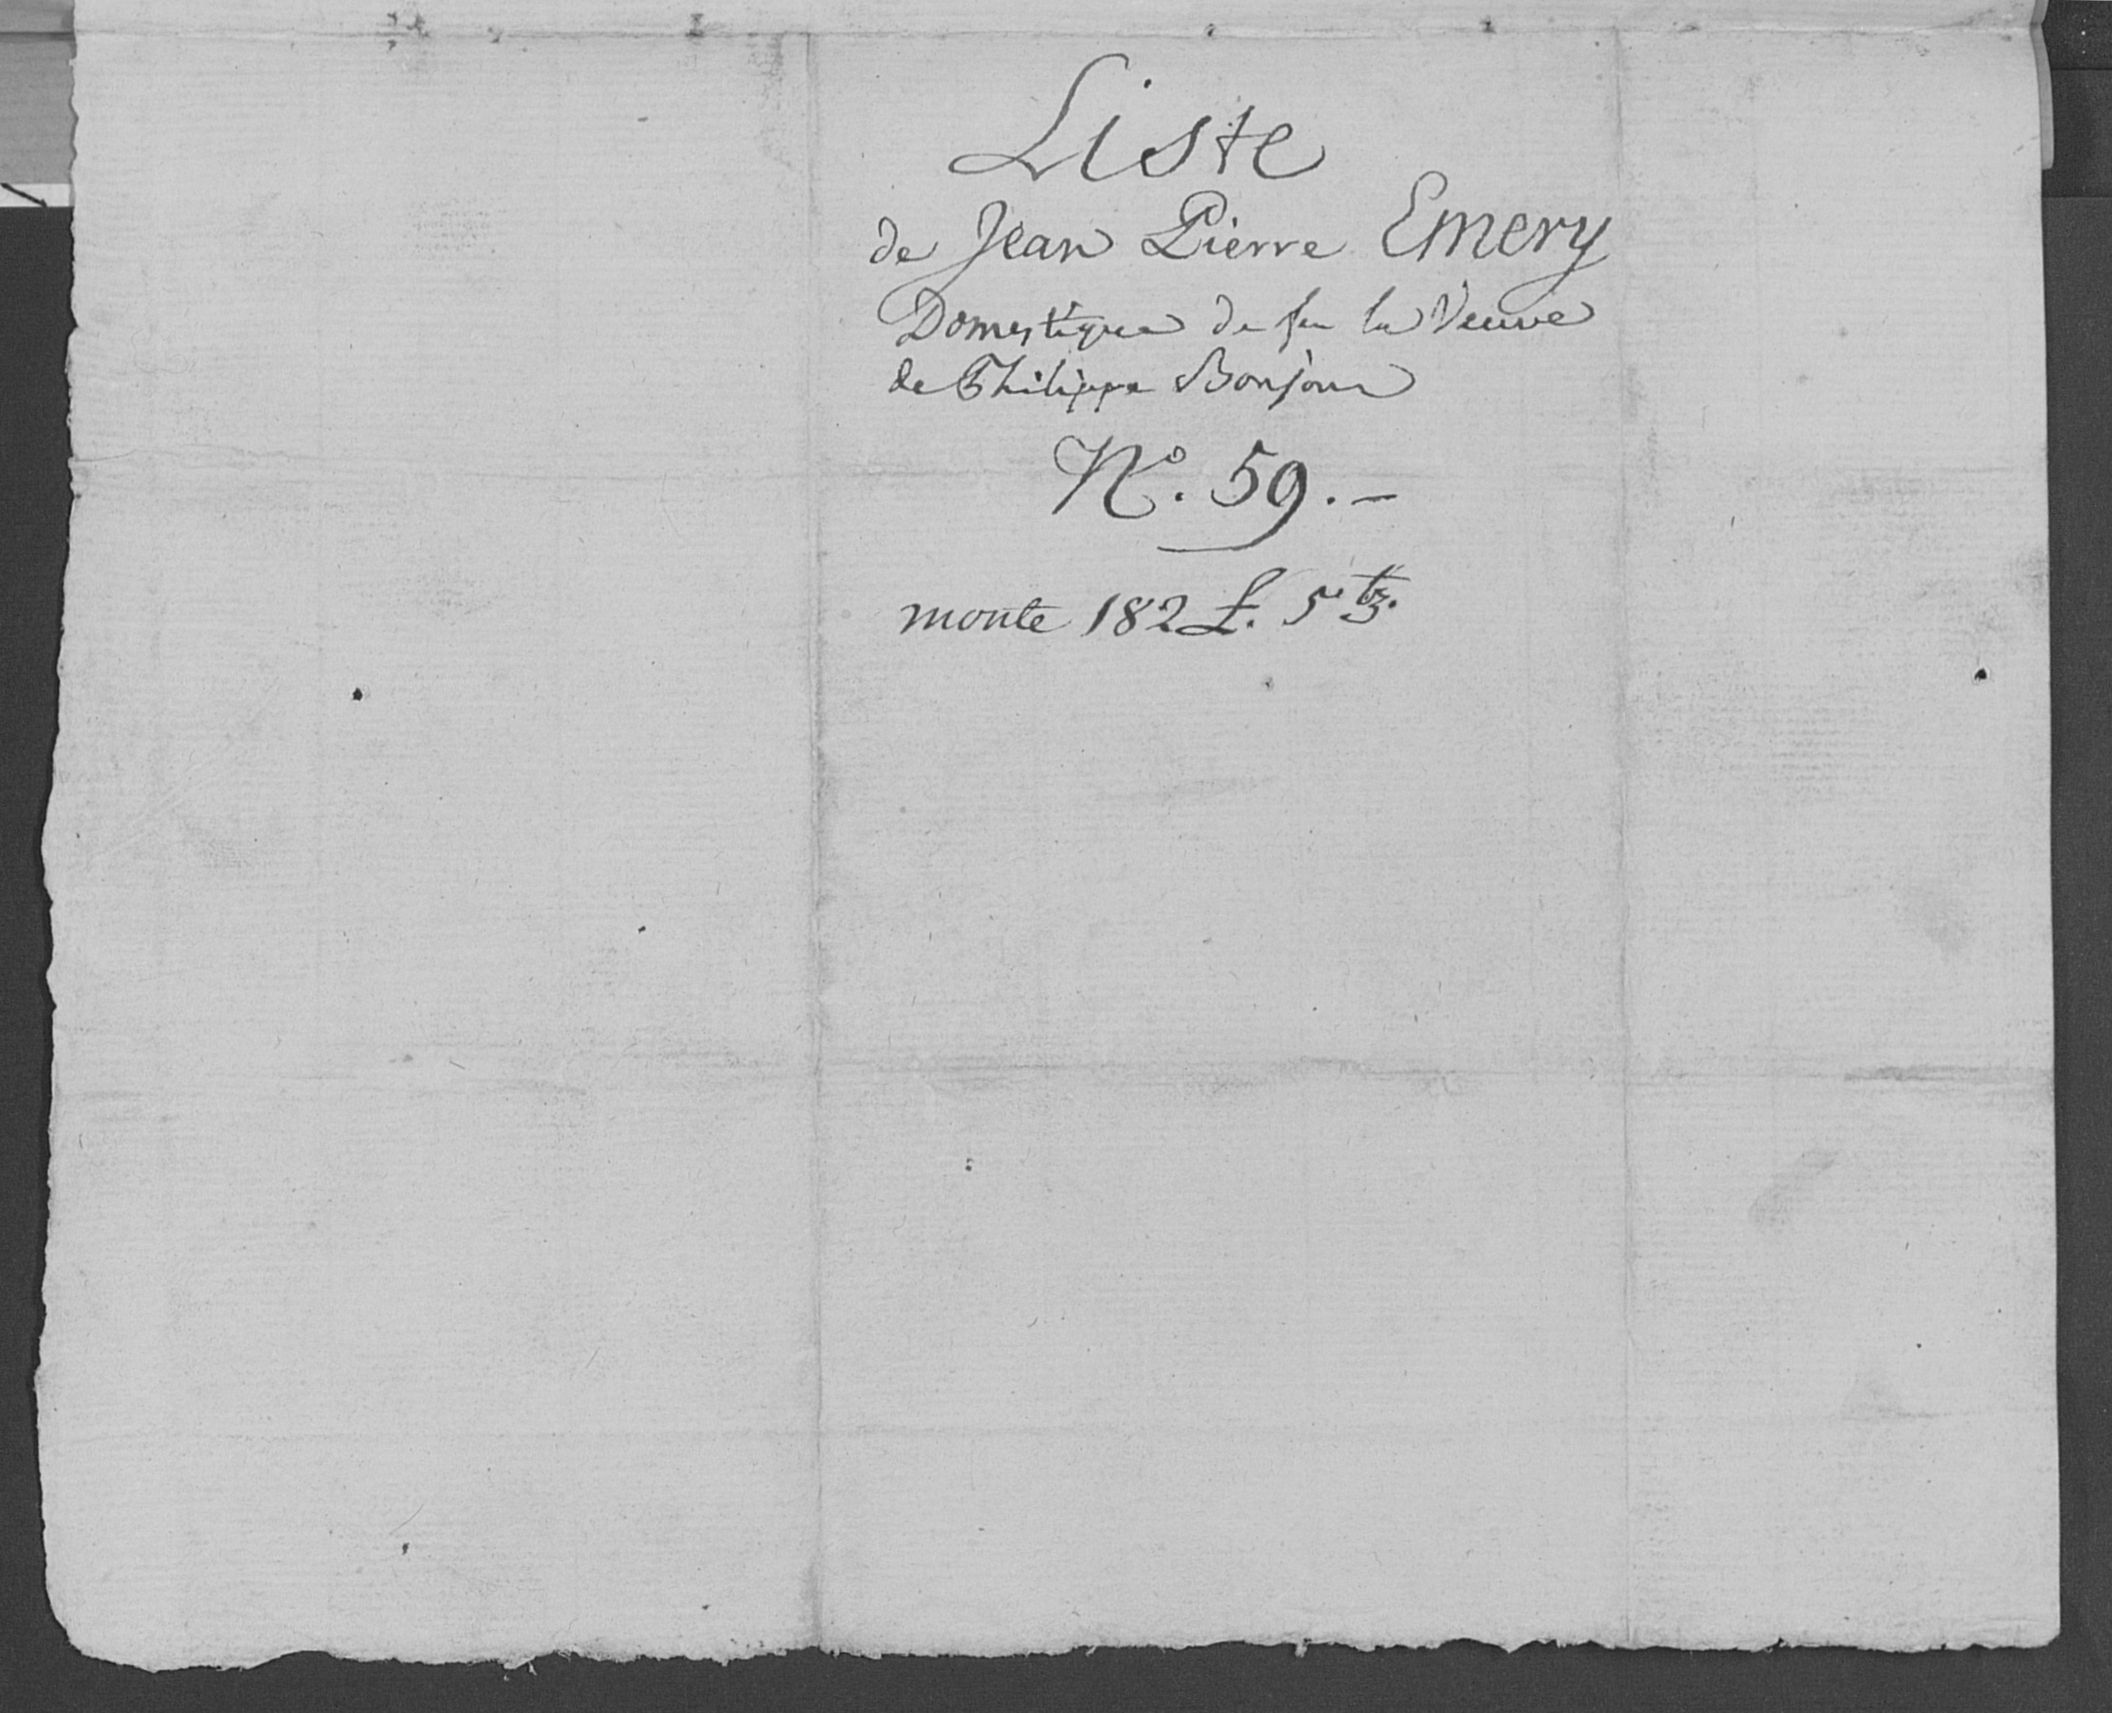 Liste
de Jean Pierre Emery
Domestique de feu la Veuve
de Philippe Bonjour
N.º 59.-
monte 182 L. 5 bz.